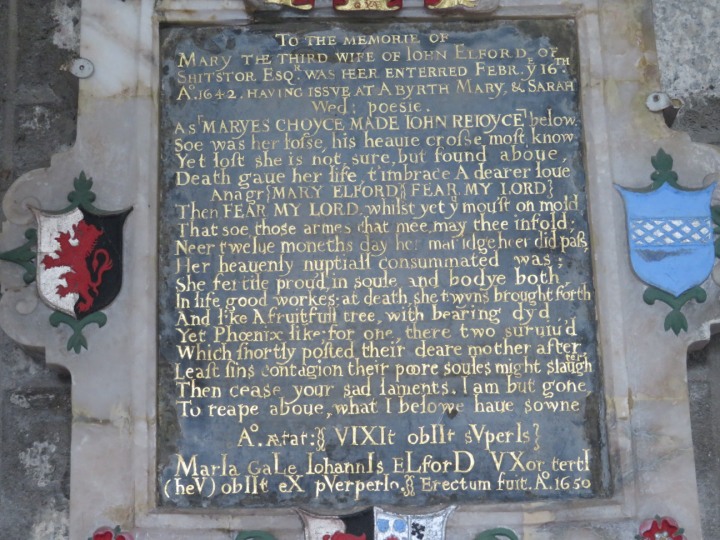 TO THE MEMORIE OF
MARY THE THIRD WIFE OF IOHN ELFORD OF
SHITSTOR ESQR. WAS HEER ENTERRED FEBR. Ye 16TH.
Ao. 1642. HAVING ISSVE AT A BYRTH MARY, & SARAH
Wed: poesie.
AST MARYES CHOYCE MADE IOHN REIOYCET below
Soe was her losse, his heauie crosse most know
Yet lost she is not, sure, but found aboue,
Death gaue her life, t'imbrace A dearer loue
Anagr{MARY ELFORD}{FEAR MY LORD}
Then FEAR MY LORD whilst yet ye mou'st on mold
That soe those armes that mee, may thee infold;
Neer twelue moneths day her maridge heer did pass,
Her heauenly nuptiall consummated was;
She fertile proud, in soule and bodye both,
In life good workes; at death she twyns brought forth
And like A fruitfull tree, with bearing dy'd
Yet Phœnix like: for one, there two suruiu'd
Which shortly posted their deare mother after
Least sins contagion their poore soules might slaughter
Then cease your sad laments, I am but gone
To reape aboue, what I belowe haue sowne
Ao. ætat:{ VIXIt obIIt sVperIs}
MarIa GaLe IohannIs eLforD VXor tertI
(heV) obIIt eX pVerperIo.}{ Erectum fuit. Ao. 1650